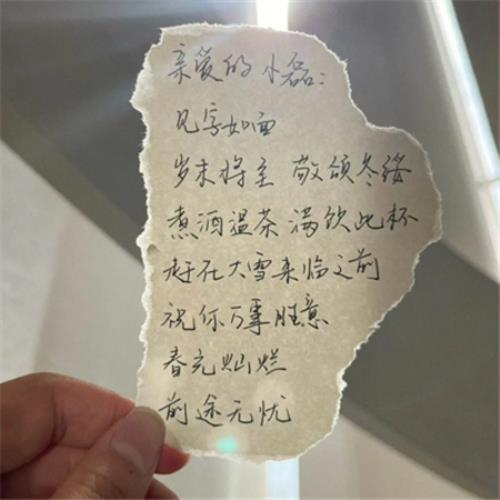 亲爱的小磊：
见字如面
岁末将至 敬颂冬绥
煮酒温茶 满饮此杯
赶在大雪来临之前
祝你万事胜意
春光灿烂
前途无忧